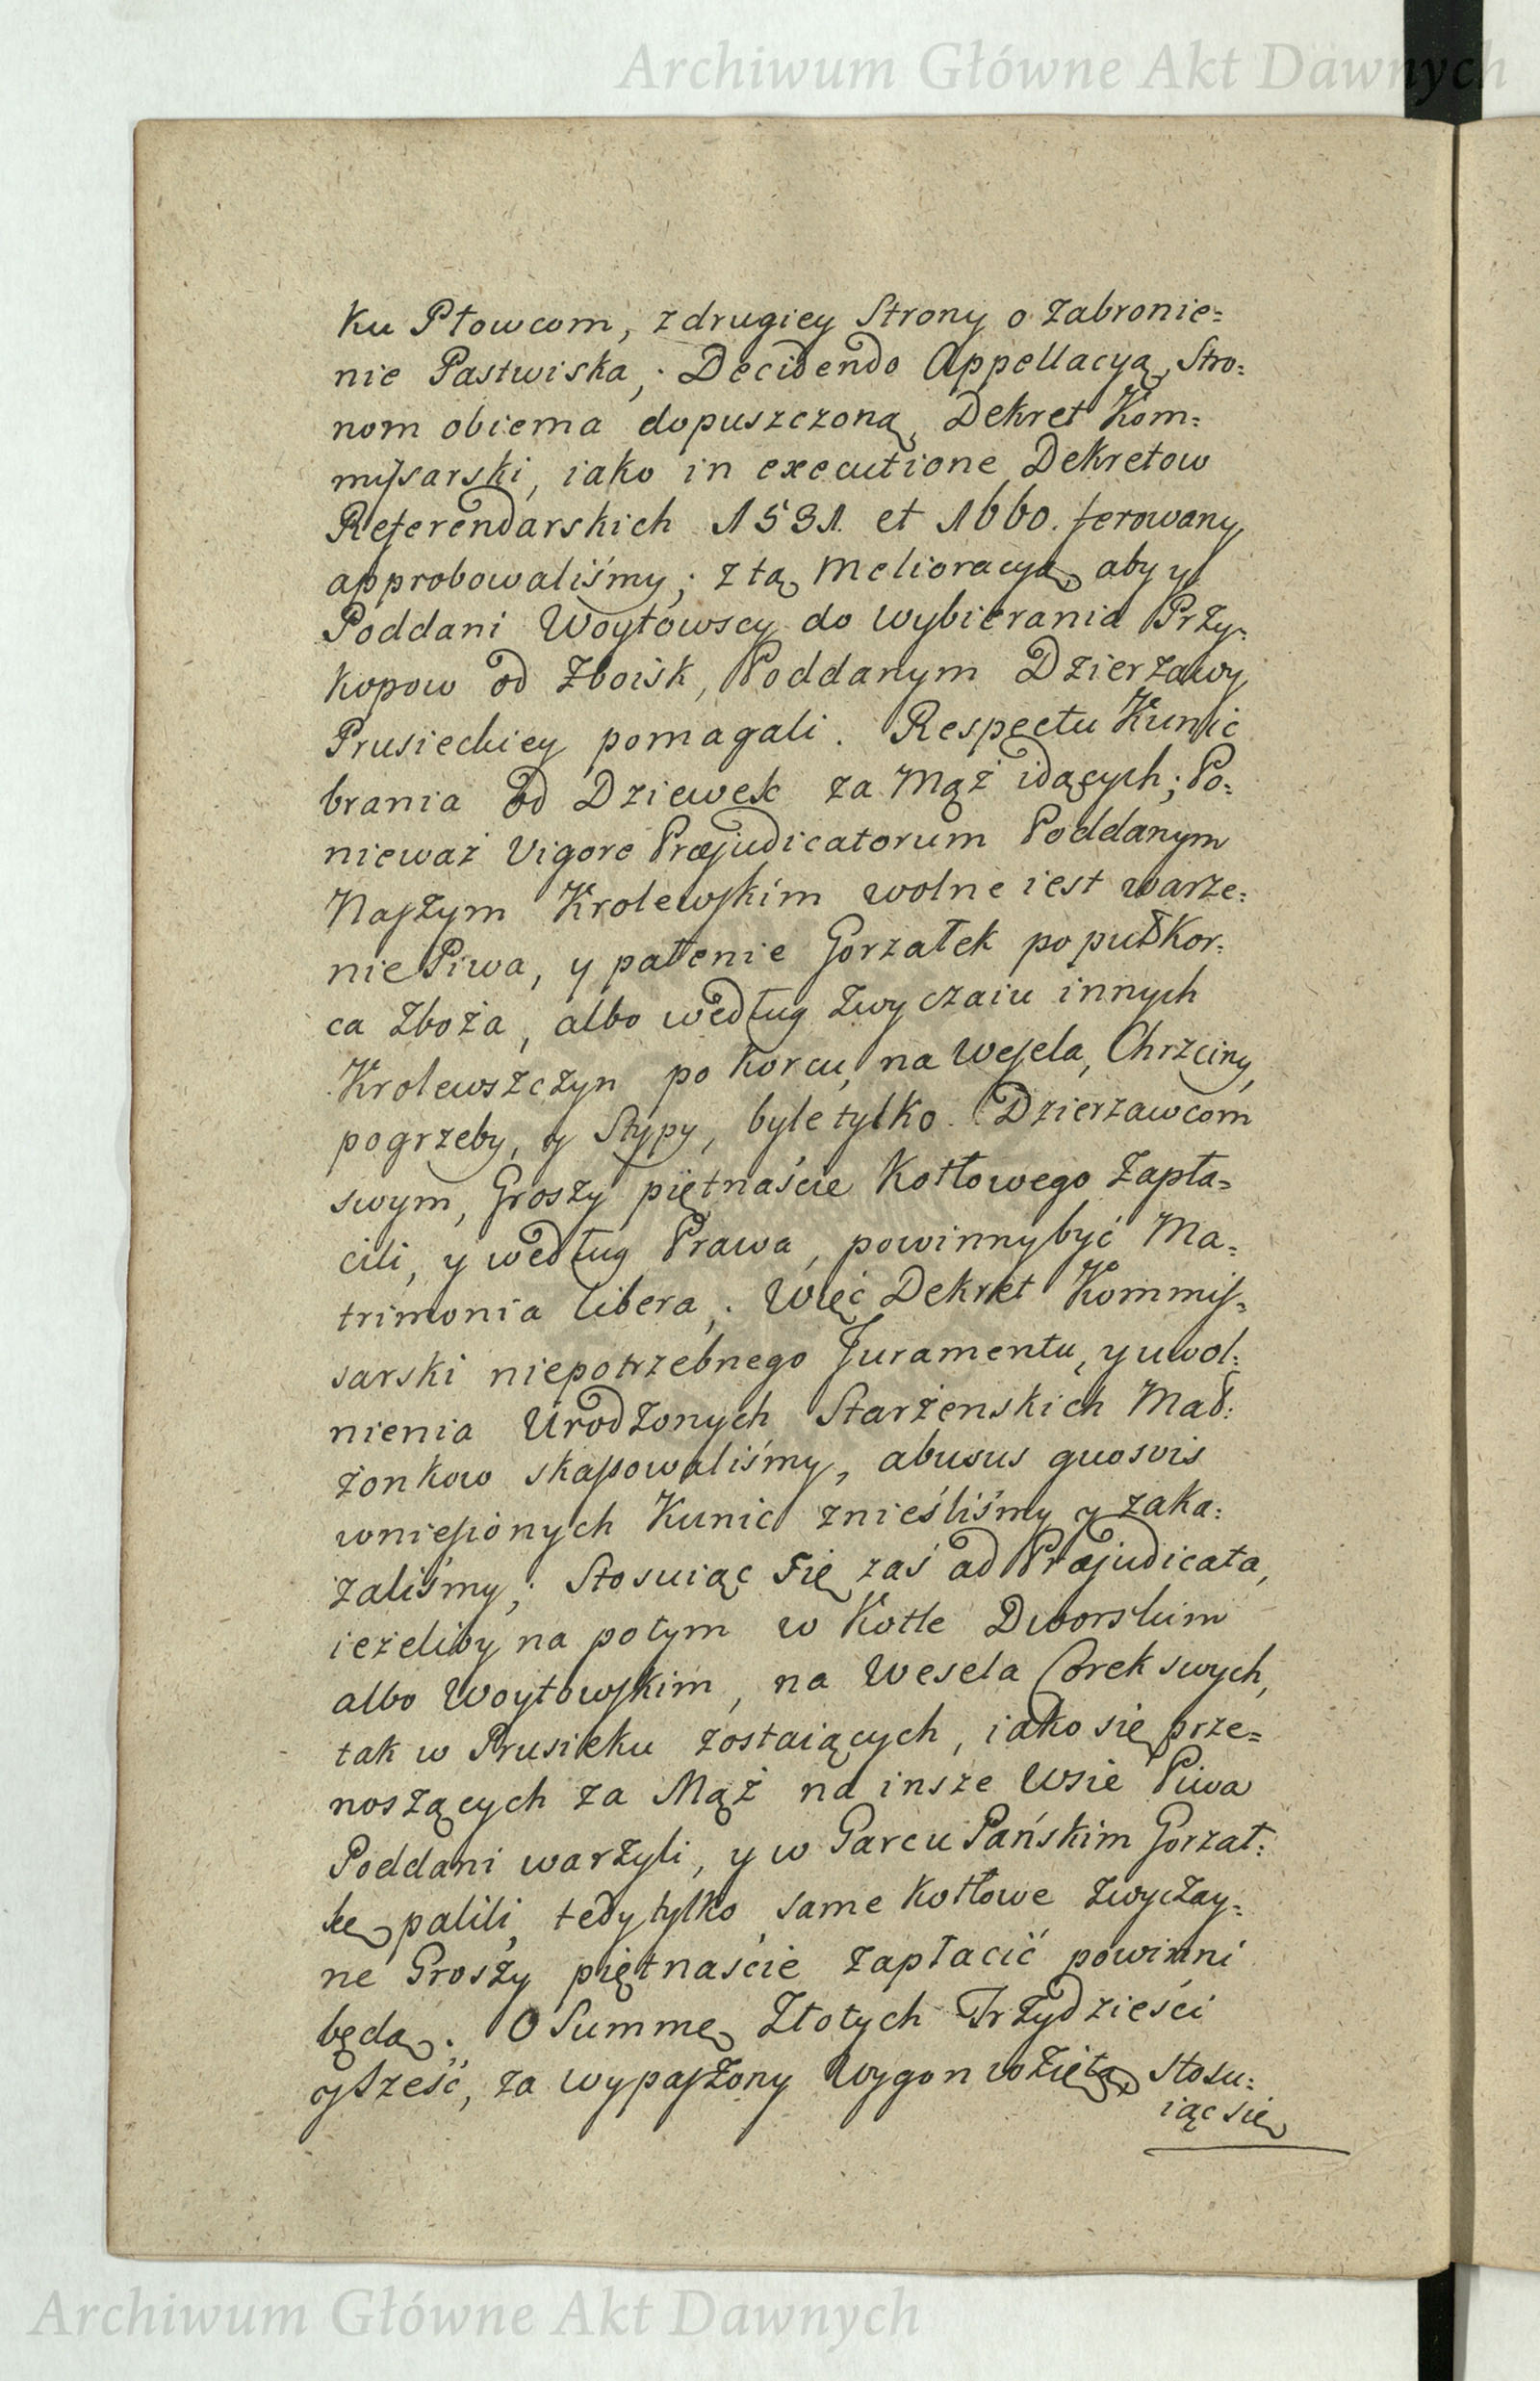 Archiwum Główne Akt Dawnych
ku Płowcom, z drugiey Strony o Zabronie=
nie Pastwiska, . Decidendo Appellacyą Stro=
nom obiema dopuszczoną, Dekret Kom=
mißarski, iako in executione Dekretow
Referendarskich 1531. et 1660. ferowany
approbowaliśmy; z tą Melioracyą, aby y
Poddani Woytowscy do wybierania Przy=
kopow od Zboisk, Poddanym Dzierzawy
Prusieckiey pomagali. Respectu Kunic
brania od Dziewek za Mąż idących; Po=
nieważ Vigore Præjudicatorum Poddanym
Naszym Krolewskim wolne iest warze=
nie Piwa, y palenie Gorzałek po puł Kor=
ca Zboża, albo według Zwyczaiu innych
Krolewszczyn po Korcu, na Wesela, Chrzciny,
pogrzeby, y Stypy, byle tylko Dzierzawcom
swym, Groszy piętnaście Kotłowego Zapła=
cili, y według Prawa, powinny być Ma=
trimonia libera, . Więc Dekret Kommis=
sarski niepotrzebnego Juramentu, y uwol=
nienia Urodzonych Starżenskich Mał=
żonkow skassowaliśmy, abusus quosvis
wniesionych Kunic znieśliśmy y zaka=
zaliśmy; Stosuiąc się zaś ad Præjudicata,
ieżeliby na potym w Kotle Dworskim
albo Woytowskim, na Wesela Corek swych,
tak w Prusieku zostaiących, iako się prze=
noszących za Mąż na insze Wsie Piwa
Poddani warzyli, y w Garcu Pańskim Gorzał=
kę palili, tedy tylko same kotłowe Zwyczay=
ne Groszy piętnaście zapłacić powinni
będą. O Summę Złotych Trzydzieści
y Sześć, za wypaszony Wygon wziętą, stosu=
iąc się
Archiwum Główne Akt Dawnych